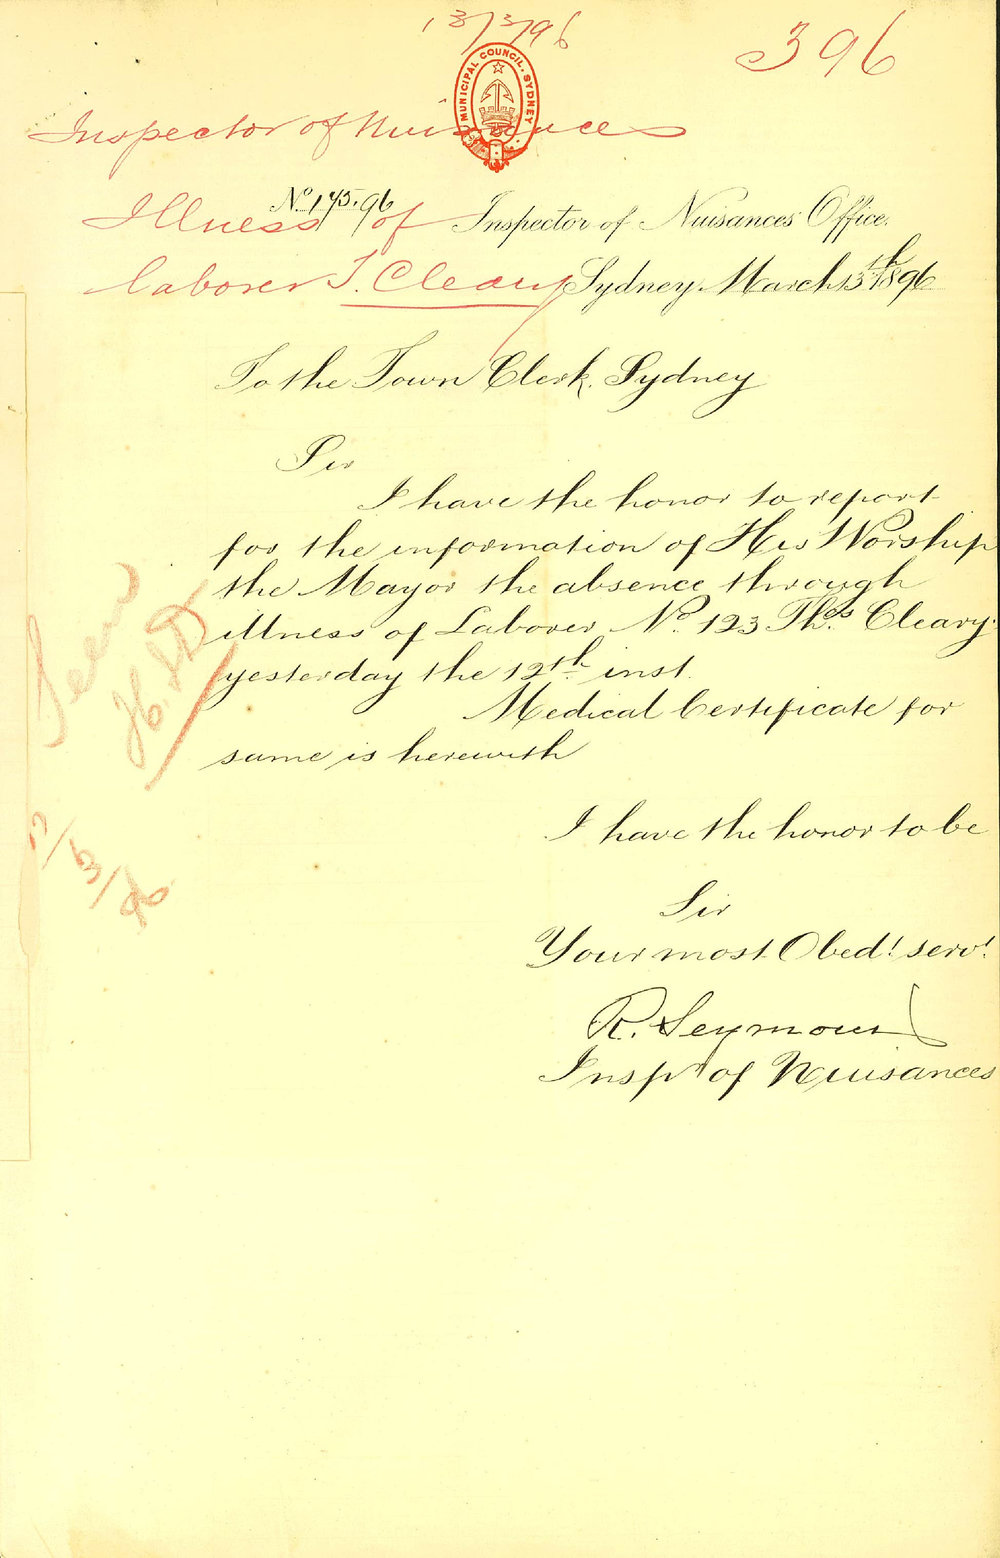 13/3/96
396
MUNICIPAL COUNCIL. SYDNEY
Inspector of Nuisances
Illness of
laborer T. Cleary
No. 145.96
Inspector of Nuisances Office.
Sydney. March 13th 1896
To the Town Clerk. Sydney
Sir
I have the honor to report
for the information of His Worship
the Mayor the absence through
illness of Laborer No. 123 Thos Cleary
yesterday the 12th inst.
Medical Certificate for
same is herewith
I have the honor to be
Sir
Your most Obedt servt
R. Seymour
Inspr of Nuisances
Seen